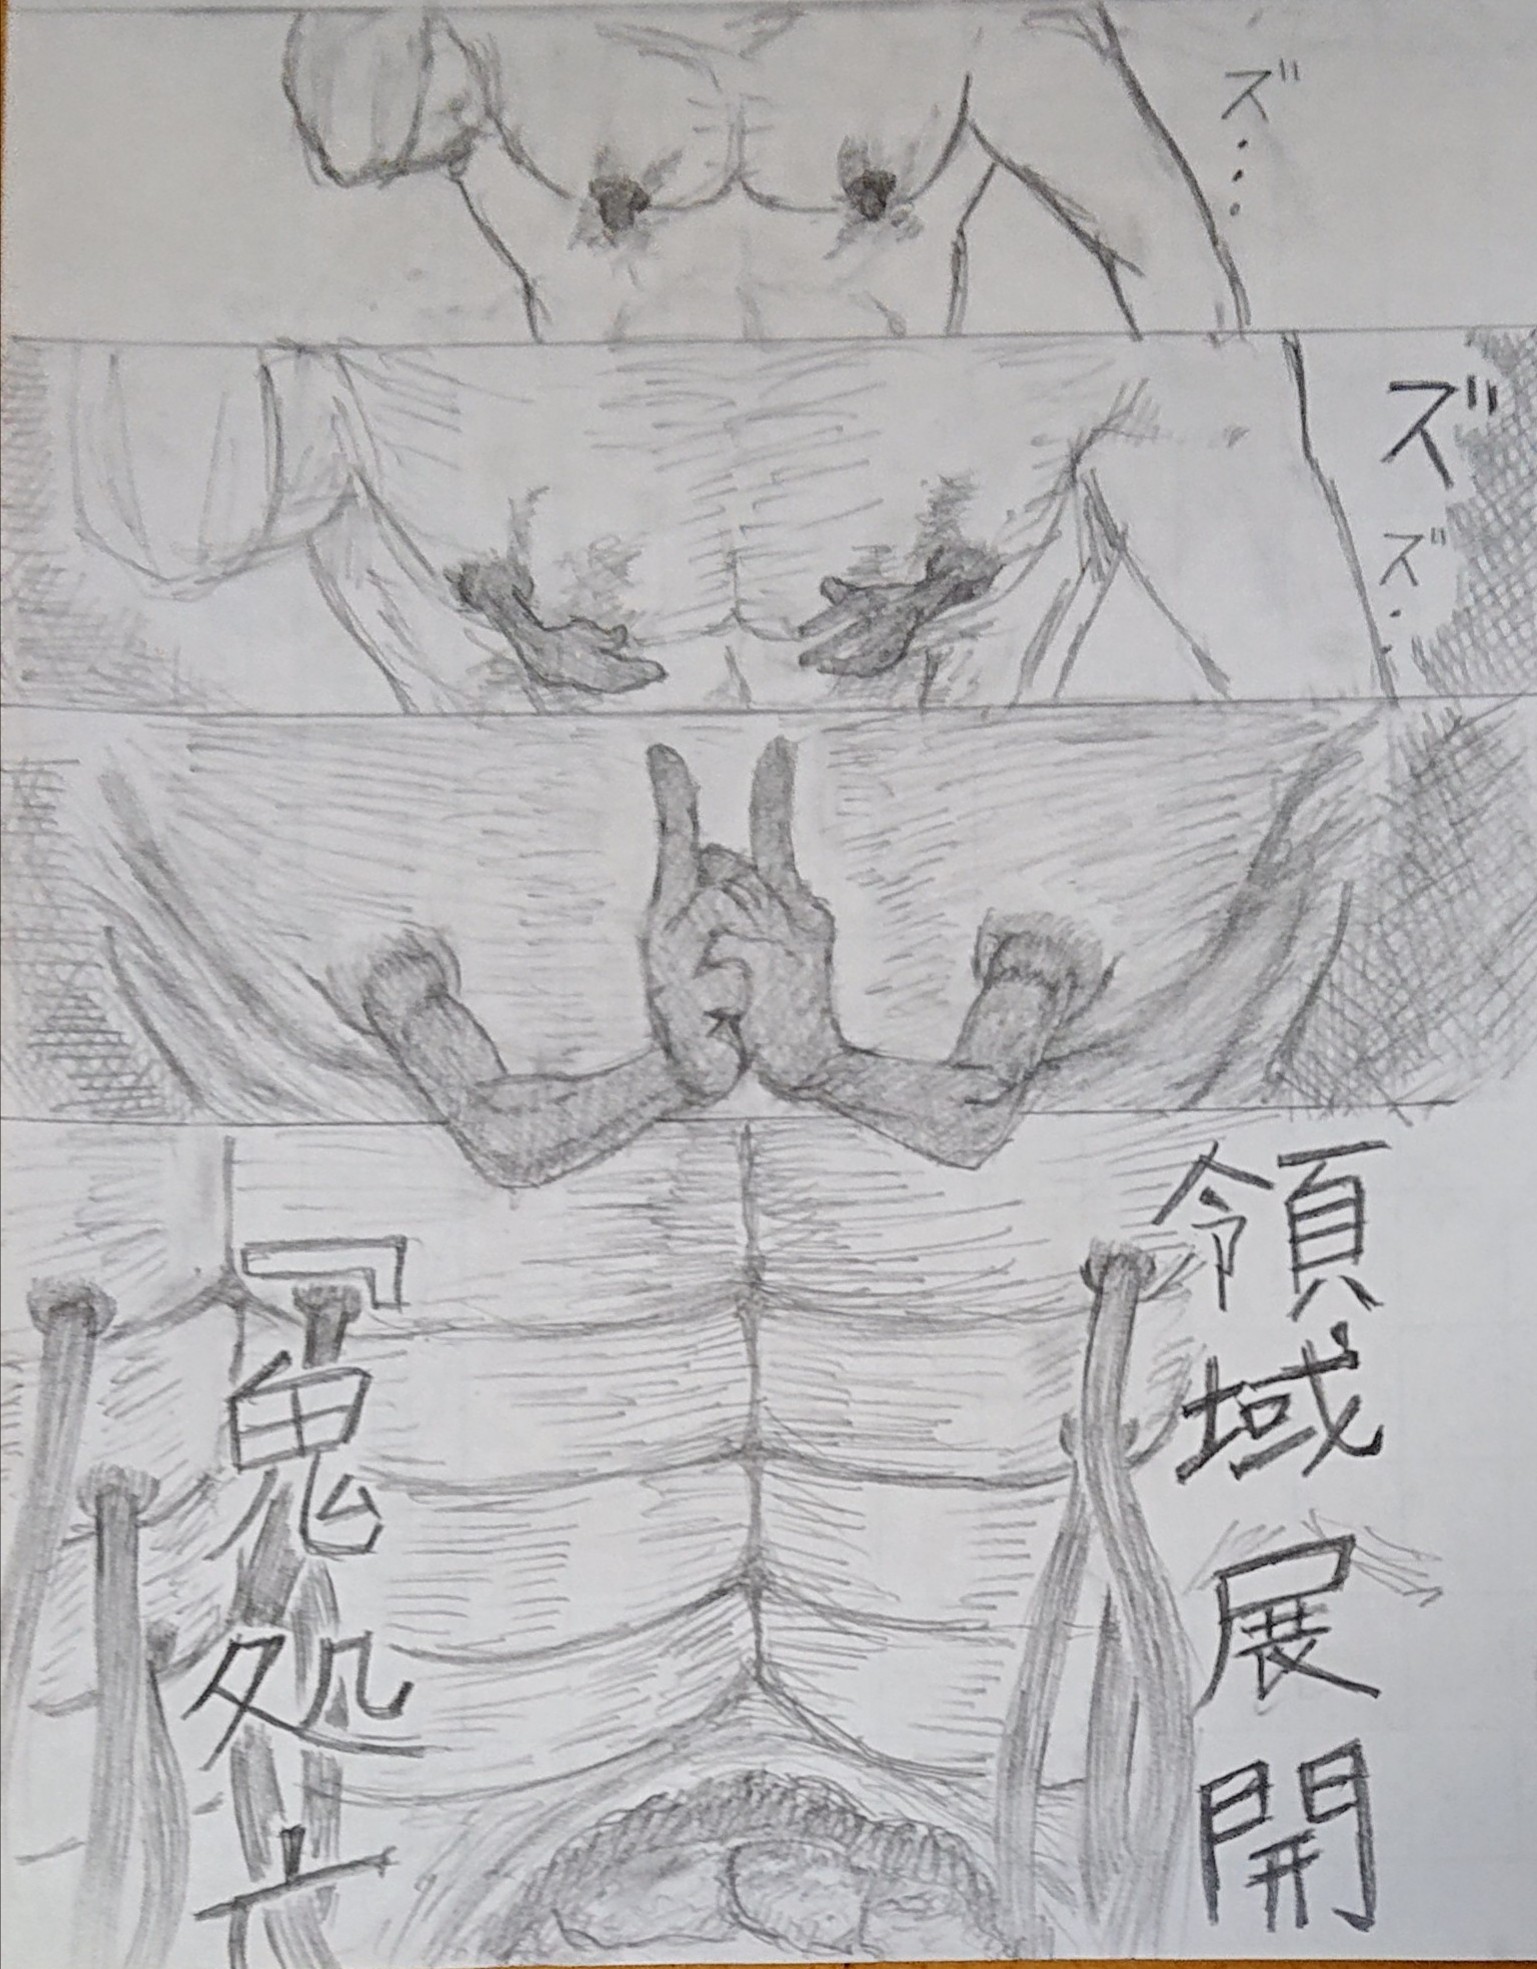 ズ…
ズズ‥
領域展開
『鬼処